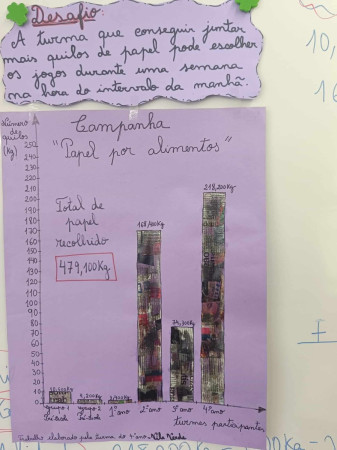 Desafio:
A turma que conseguir juntar
mais quilos de papel pode escolher
os jogos durante uma semana
na hora do intervalo da manhã.
Campanha
"Papel por alimentos"
Número
de
quilos
(kg)
Total de
papel
recolhido
479,100Kg
250
240
230
220
210
200
190
180
170
160
150
140
130
120
110
100
90
80
70
60
50
40
30
20
10
0
218,200Kg
4,200Kg
grupo 1
grupo 2
1º ano
2º ano
3º ano
4º ano
turmas participantes
Trabalho elaborado pela turma do 4º ano